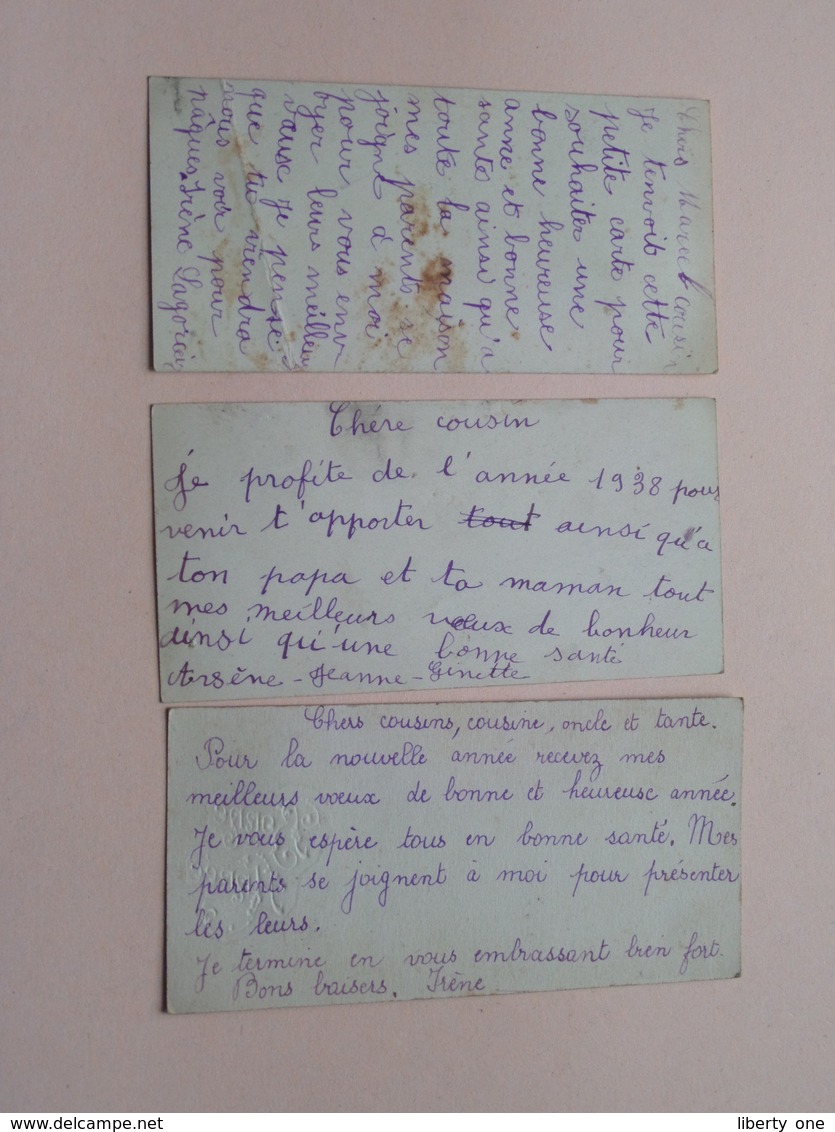 Chers cousin
Je tenvoit cette
petite carte pour
souhaiter une
bonne heureuse
anne et bonne
santé ainsi qu'a
toute la maison
mes parents se
joigne à moi
pour vous env
oyer leurs meilleu
vause je pense
que tu viendra
nous voir pour
pâques Irène
Chére cousin
Je profite de l'année 1938 pour
venir t'apporter tout ainsi qu'a
ton papa et ta maman tout
mes meilleurs vœux de bonheur
ainsi qu'une bonne santé
Arsène - Jeanne - Ginette
Chers cousins, cousine, oncle et tante.
Pour la nouvelle année recevez mes
meilleurs vœux de bonne et heureuse année.
Je vous espère tous en bonne santé. Mes
parents se joignent à moi pour présenter
les leurs.
Je termine en vous embrassant bien fort.
Bons baisers. Irène
delcampe.net
liberty one